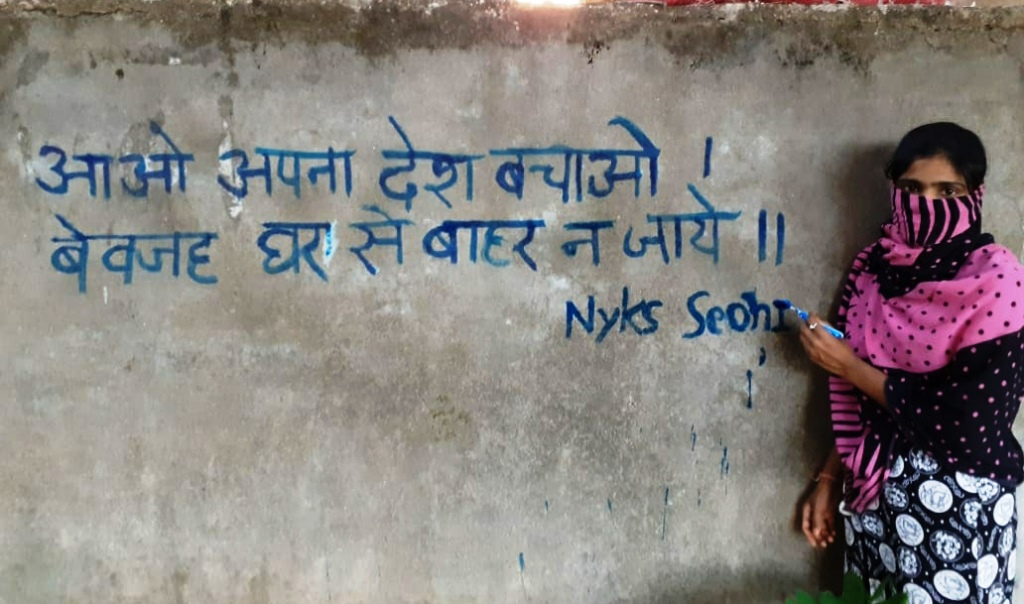 आओ अपना देश बचाओ ।
बेवजह घर से बाहर न जाये ॥
Nyks Seohi